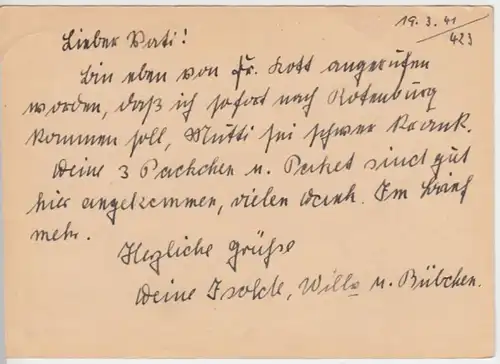 19. 3. 41
423
Lieber Vati!
Bin eben von Fr. Kott angerufen
worden, daß ich sofort nach Rotenburg
kommen soll, Mutti sei schwer krank.
Deine 3 Päckchen u. Paket sind gut
hier angekommen, vielen Dank. Im Brief
mehr.
Herzliche Grüße
Deine Isolde, Willo u. Bübchen.